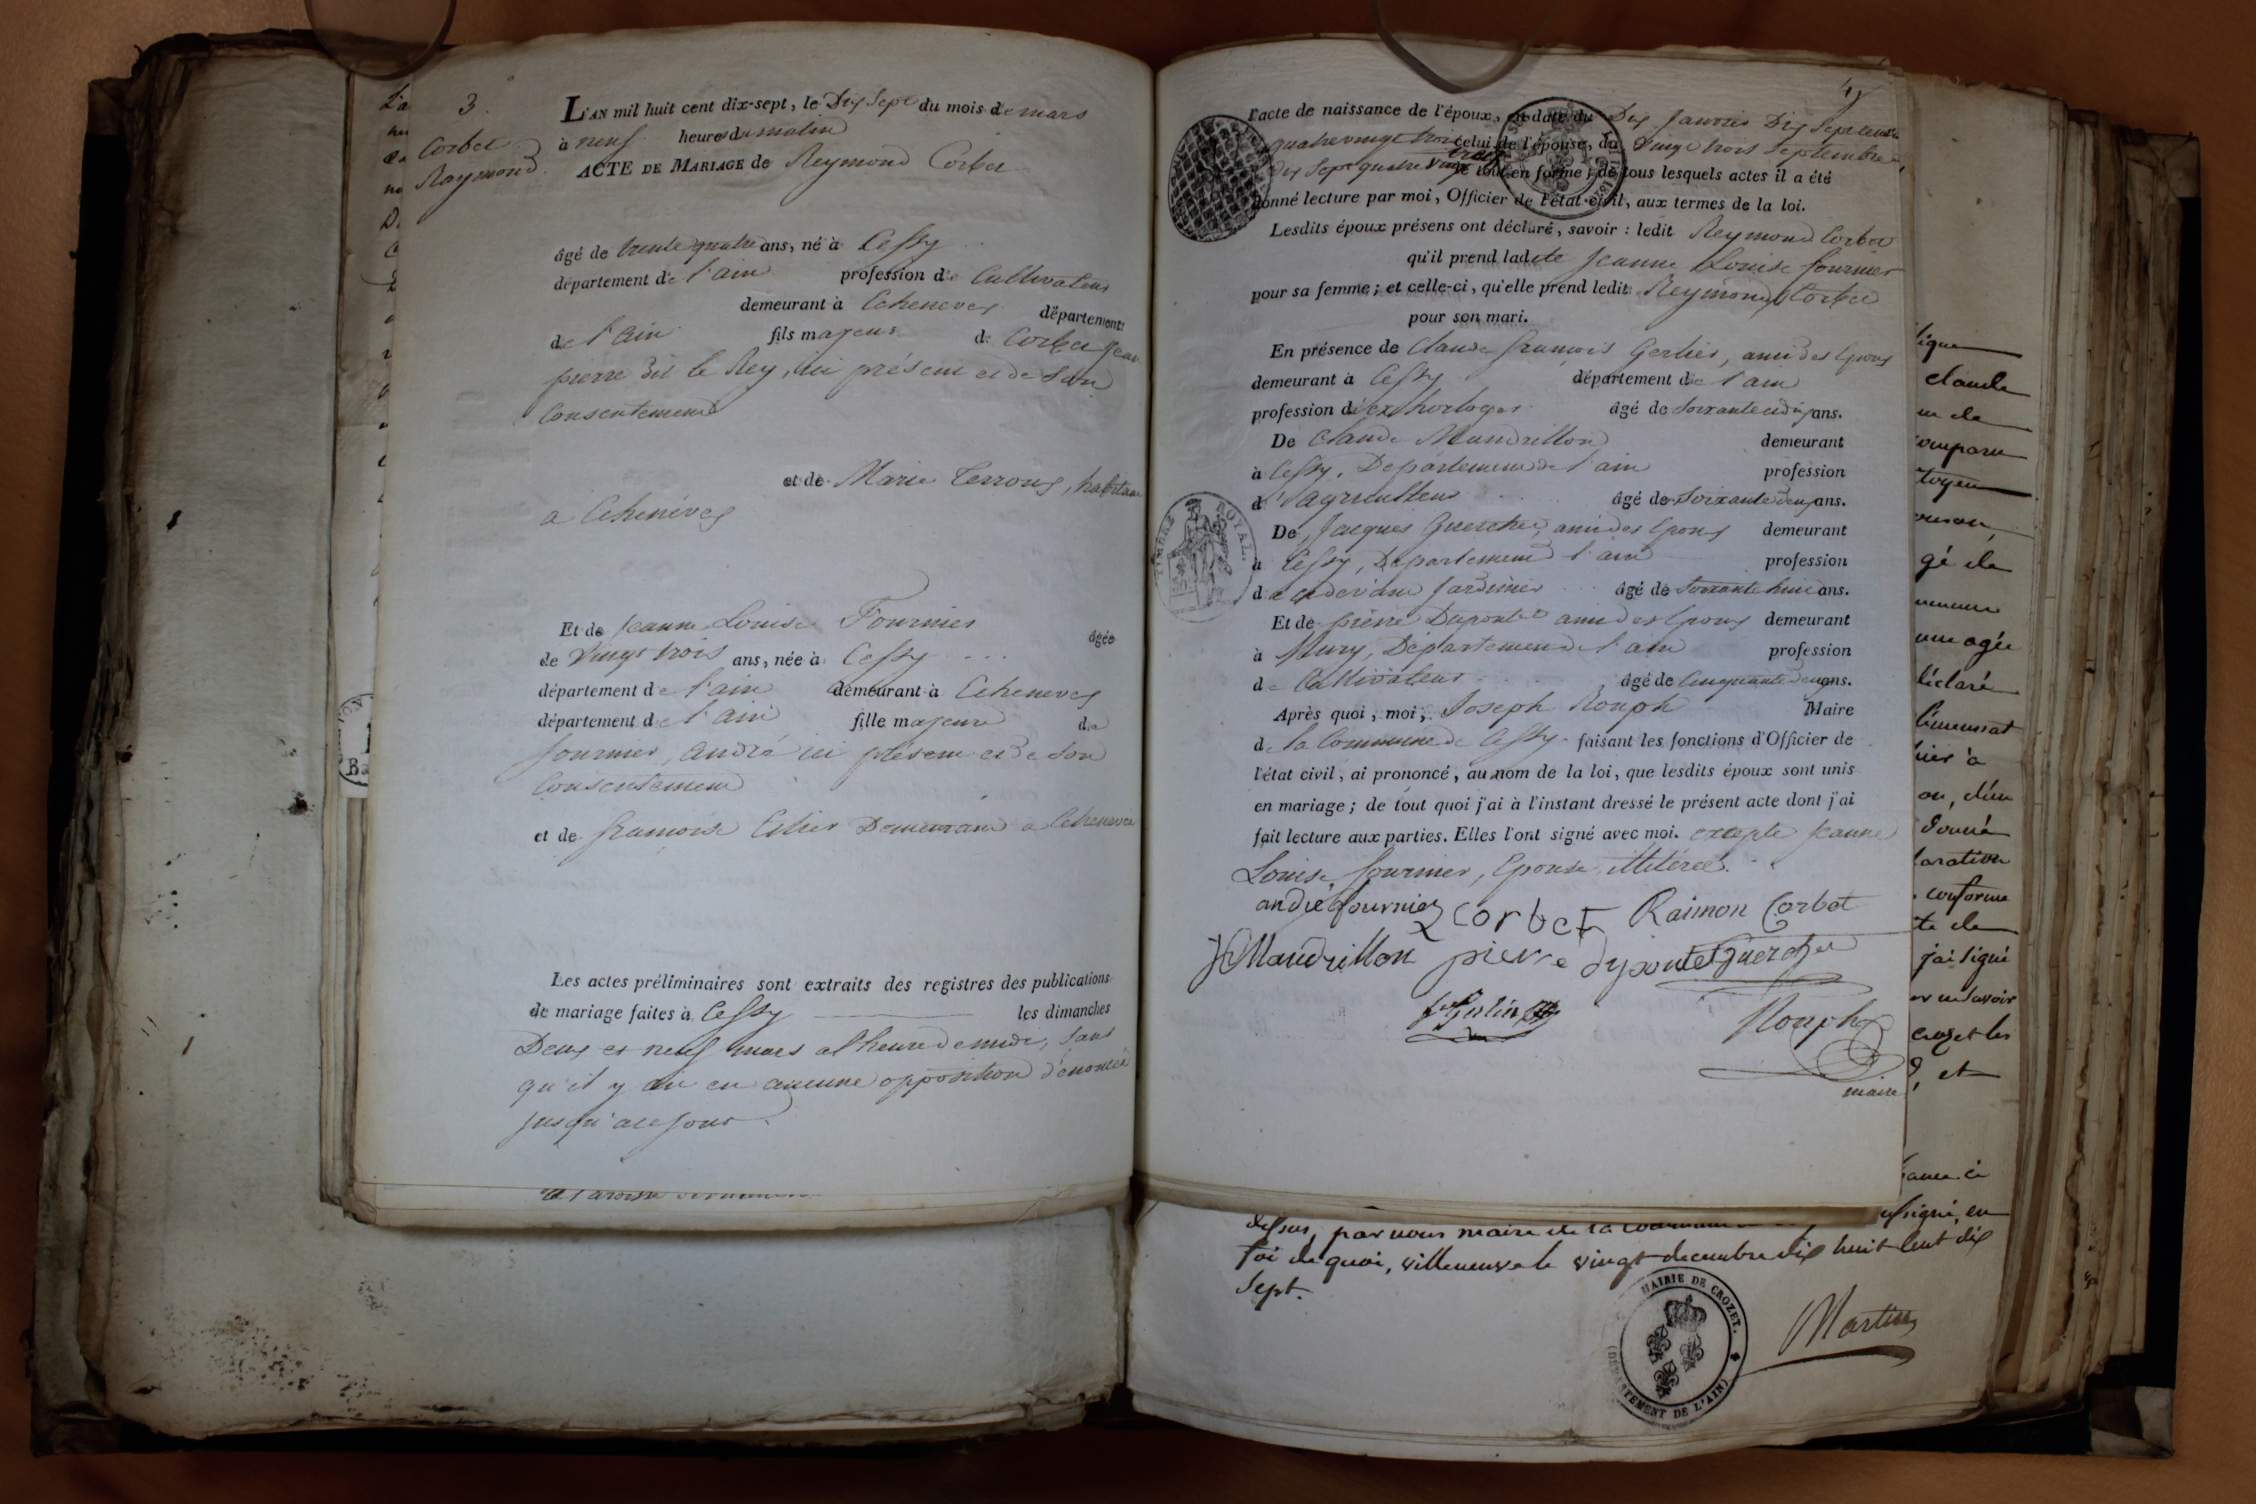 3.
Corbet
Raymond
L'AN mil huit cent dix-sept, le Dix Sept du mois de mars
à neuf heures du matin
ACTE DE MARIAGE de Reymond Corbet
âgé de trente quatre ans, né à Cessy
département de l'ain profession de Cultivateur
demeurant à Echenevex département
de l'ain fils majeur de Corbet Jean
pierre dit le Rey, ici présent et de Son
Consentement
et de Marie Terroux, habitant
a Echenévex
Et de Jeanne Louise Fournier
âgée
de Vingt trois ans, née à Cessy
département de l'ain demeurant à Echenevex
département de l'ain fille majeure de
fournier, andré ici présent et de Son
Consentement
et de françoise Demeurant a Echenevex
Les actes préliminaires sont extraits des registres des publications
de mariage faites à Cessy les dimanches
Deux et neuf mars a l'heure de midi, Sans
qu'il y au eu aucune opposition dénoncée
jusqu'a ce jour.
l'acte de naissance de l'époux, en date du Dix Janvier Dix Sept cent
quatre vingt trois celui de l'épouse, du Vingt trois Septembre
dix Sept quatre vingt treize le tout en forme ; de tous lesquels actes il a été
donné lecture par moi, Officier de l'état civil, aux termes de la loi.
Lesdits époux présens ont déclaré, savoir : ledit Reymond Corbet
qu'il prend ladite Jeanne Louise fournier
pour sa femme ; et celle-ci, qu'elle prend ledit Reymond Corbet
pour son mari.
En présence de Claude françois Gerlier, ami des Epoux
demeurant à Cessy département de l'ain
profession d'ex horloger âgé de Soixante et dix ans.
De Claude Mandrillon demeurant
à Cessy, Departement de l'ain profession
d'agriculteur âgé de Soixante deux ans.
De Jacques Guerchet, ami des Epoux demeurant
à Cessy, Departement l'ain profession
de cidevant Jardinier âgé de Soixante huit ans.
Et de pierre Dupontet ami des Epoux demeurant
à Mury, Département de l'ain profession
de Cultivateur âgé de Cinquante deux ans.
Après quoi, moi, Joseph Rouph Maire
de la Commune de Cessy faisant les fonctions d'Officier de
l'état civil, ai prononcé, au nom de la loi, que lesdits époux sont unis
en mariage ; de tout quoi j'ai à l'instant dressé le présent acte dont j'ai
fait lecture aux parties. Elles l'ont signé avec moi. excepte Jeanne
Louise fournier, Epouse illitérée.
andré fournier corbet Raimon Corbet
Mandrillon pierre dupontet Guerchet
Rouph
maire
TIMBRE ROYAL.
par nous maire de la
soussigné, en
foi de quoi, villeneuve le vingt decembre dix huit cent dix
Sept.
MAIRIE DE CROZET.
(DÉPARTEMENT DE L'AIN)
Martin